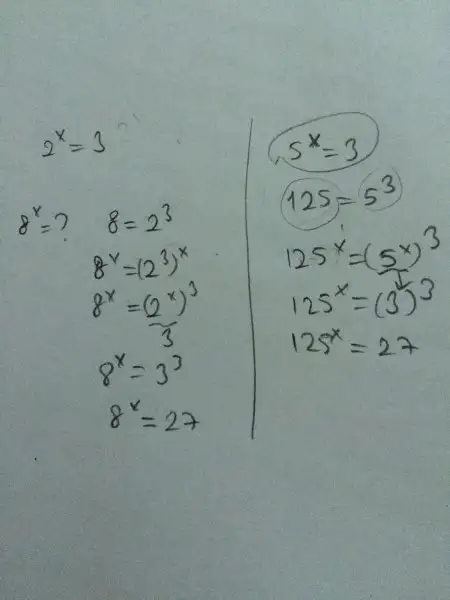 2ˣ = 3
8ˣ = ? 8 = 2³
8ˣ = (2³)ˣ
8ˣ = (2ˣ)³
3
8ˣ = 3³
8ˣ = 27
5ˣ = 3
125 = 5³
125ˣ = (5ˣ)³
125ˣ = (3)³
125ˣ = 27